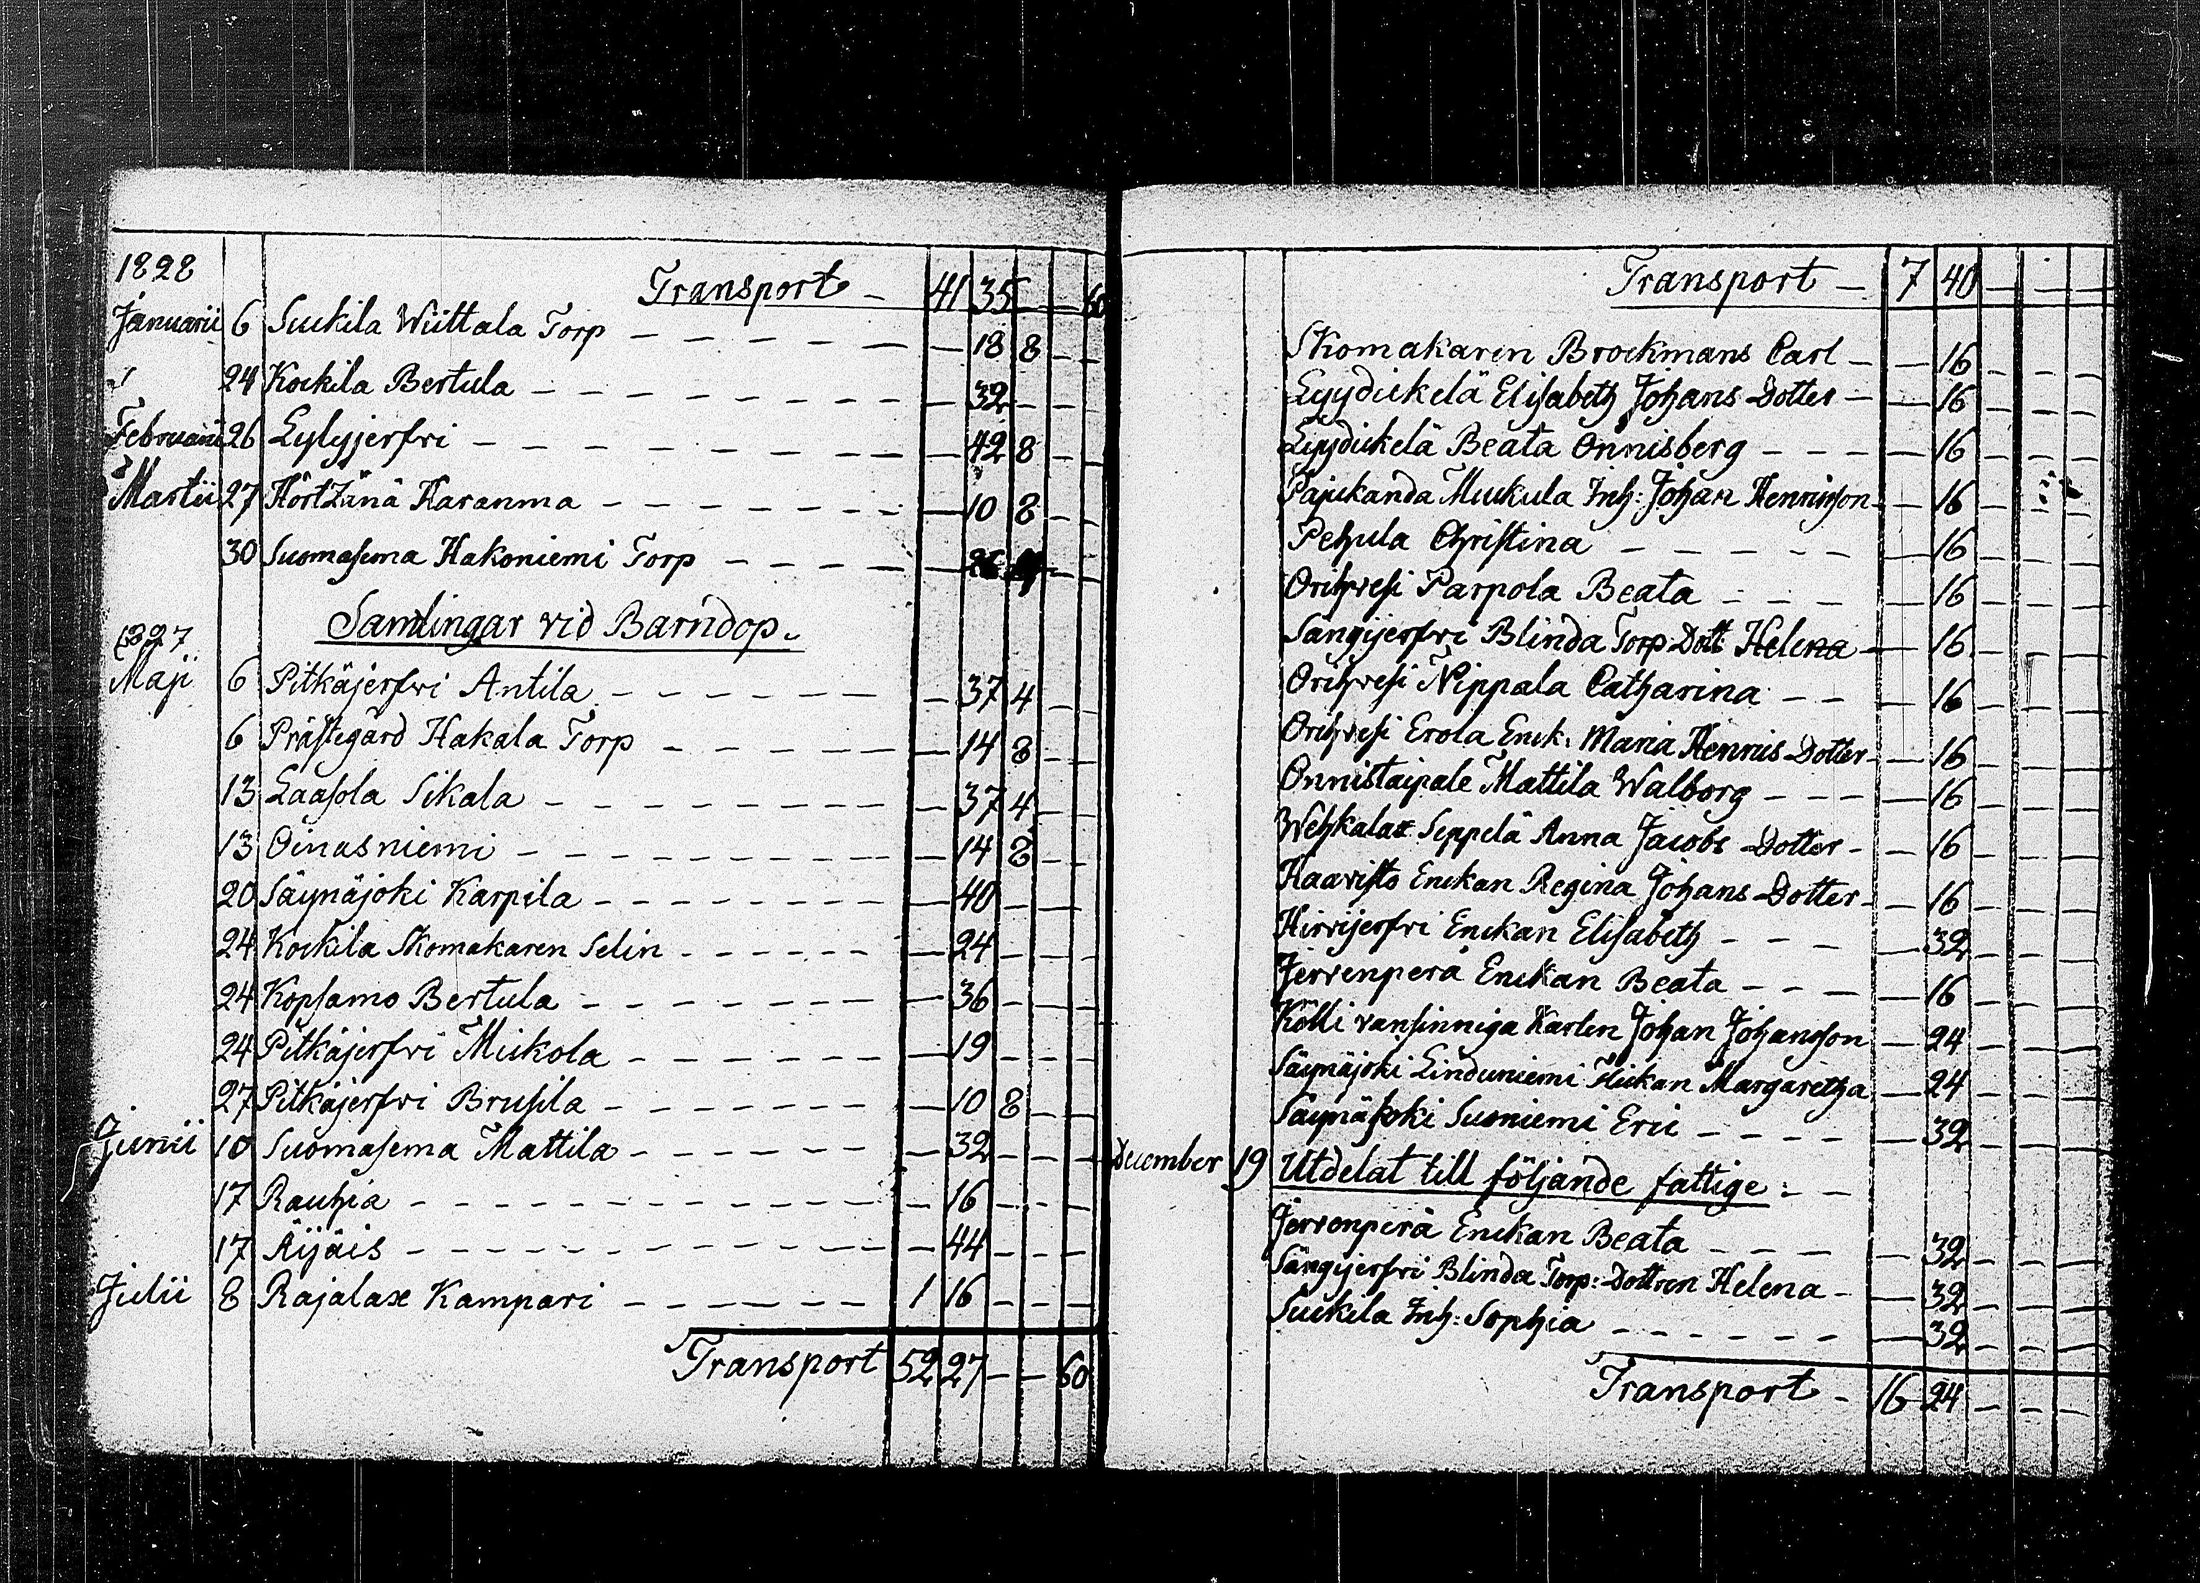 1828
Transport - 41 35 - - 60
Januarii 6 Suckila Wiittala Torp - 18 8 - -
24 Kockila Bertula - 32 - - -
Februarii 26 Lylyjerfvi - 42 8 - -
Martii 27 Hörtzänä Haranma - 10 8 - -
30 Suomasema Hakoniemi Torp
Samlingar vid Barndop.
1827
Maji 6 Pitkäjerfvi Antila - 37 4 - -
6 Prästegård Hakala Torp - 14 8 - -
13 Laasola Sikala - 37 4 - -
13 Oinasniemi - 14 8 - -
20 Säynäjoki Karpila - 40 - - -
24 Kockila Skomakaren Selin - 24 - - -
24 Kopsamo Bertula - 36 - - -
24 Pitkäjerfvi Mickola - 19 - - -
27 Pitkäjerfvi Brusila - 10 8 - -
Junii 10 Suomasema Mattila - 32 - - -
17 Rauhia - 16 - - -
17 Äijäis - 44 - - -
Julii 8 Rajalax Kampari - 1 16 - - -
Transport 52 27 - - 60
Transport - 7 40 - - -
Skomakaren Brockmans Carl - 16 - - -
Lyydickelä Elisabeth Johans Dotter - 16 - - -
Lyydickelä Beata Onnisberg - 16 - - -
Pajukanda Muckula Inh: Johan Henricson - 16 - - -
Pehula Christina - 16 - - -
Orihvesi Parpola Beata - 16 - - -
Sängijerfvi Blinda Torp: Dott: Helena - 16 - - -
Orihvesi Nippala Catharina - 16 - - -
Orihvesi Erola Enck: Maria Henrics Dotter - 16 - - -
Onnistaipale Mattila Walborg - 16 - - -
Wehkalax Seppelä Anna Jacobs Dotter - 16 - - -
Haavisto Enckan Regina Johans Dotter - 16 - - -
Hirvijerfvi Enckan Elisabeth - 32 - - -
Jervenperä Enckan Beata - 16 - - -
Kölli vansinniga Karlen Johan Johanson - 24 - - -
Säynäjoki Linduniemi Flickan Margaretha - 24 - - -
Säynäjoki Susniemi Eric - 32 - - -
December 19 Utdelat till följande fattige: -
Jervenperä Enckan Beata - 32 - - -
Sängijerfvi Blinda Torp: Dottren Helena - 32 - - -
Suckila Inh: Sophia - 32 - - -
Transport - 16 24 - - -